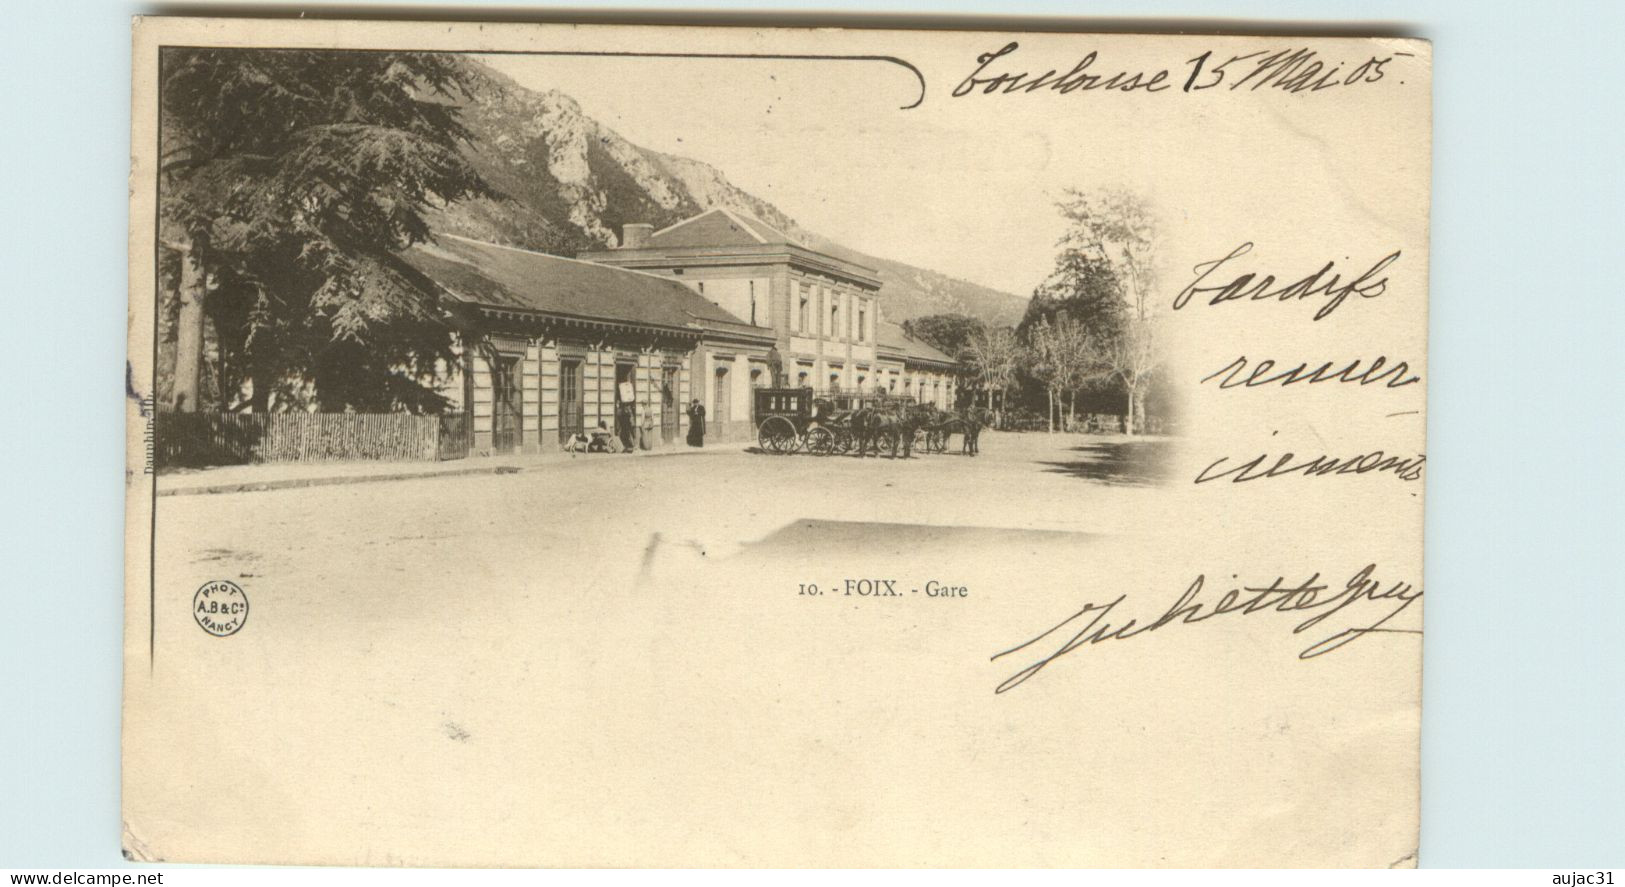 Toulouse 15 Mai 05.
Tardifs
remer-
ciements.
Juliette Grey
Dauphin
10. - FOIX. - Gare
PHOT
A.B & Cie
NANCY
delcampe.net
aujac31